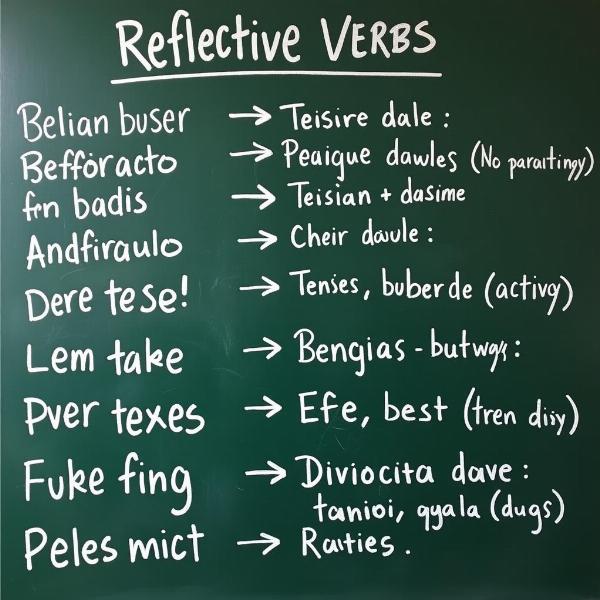 Reflective VERBS
Belian buser → Teisire dale :
Beffóracto → Peaigue dawles (No paraitingy)
frn badis → Teisian + dasime
Andfiraulo → Cheir davule :
Dere te se! → Tenses, buberde (activy)
Lem take → Bengias - butwgs :
Pver texes → Efe, best (tren disy)
Fuke fing → Diviocita dave :
tanioi, qyala (dugs)
Peles mict → Raities .